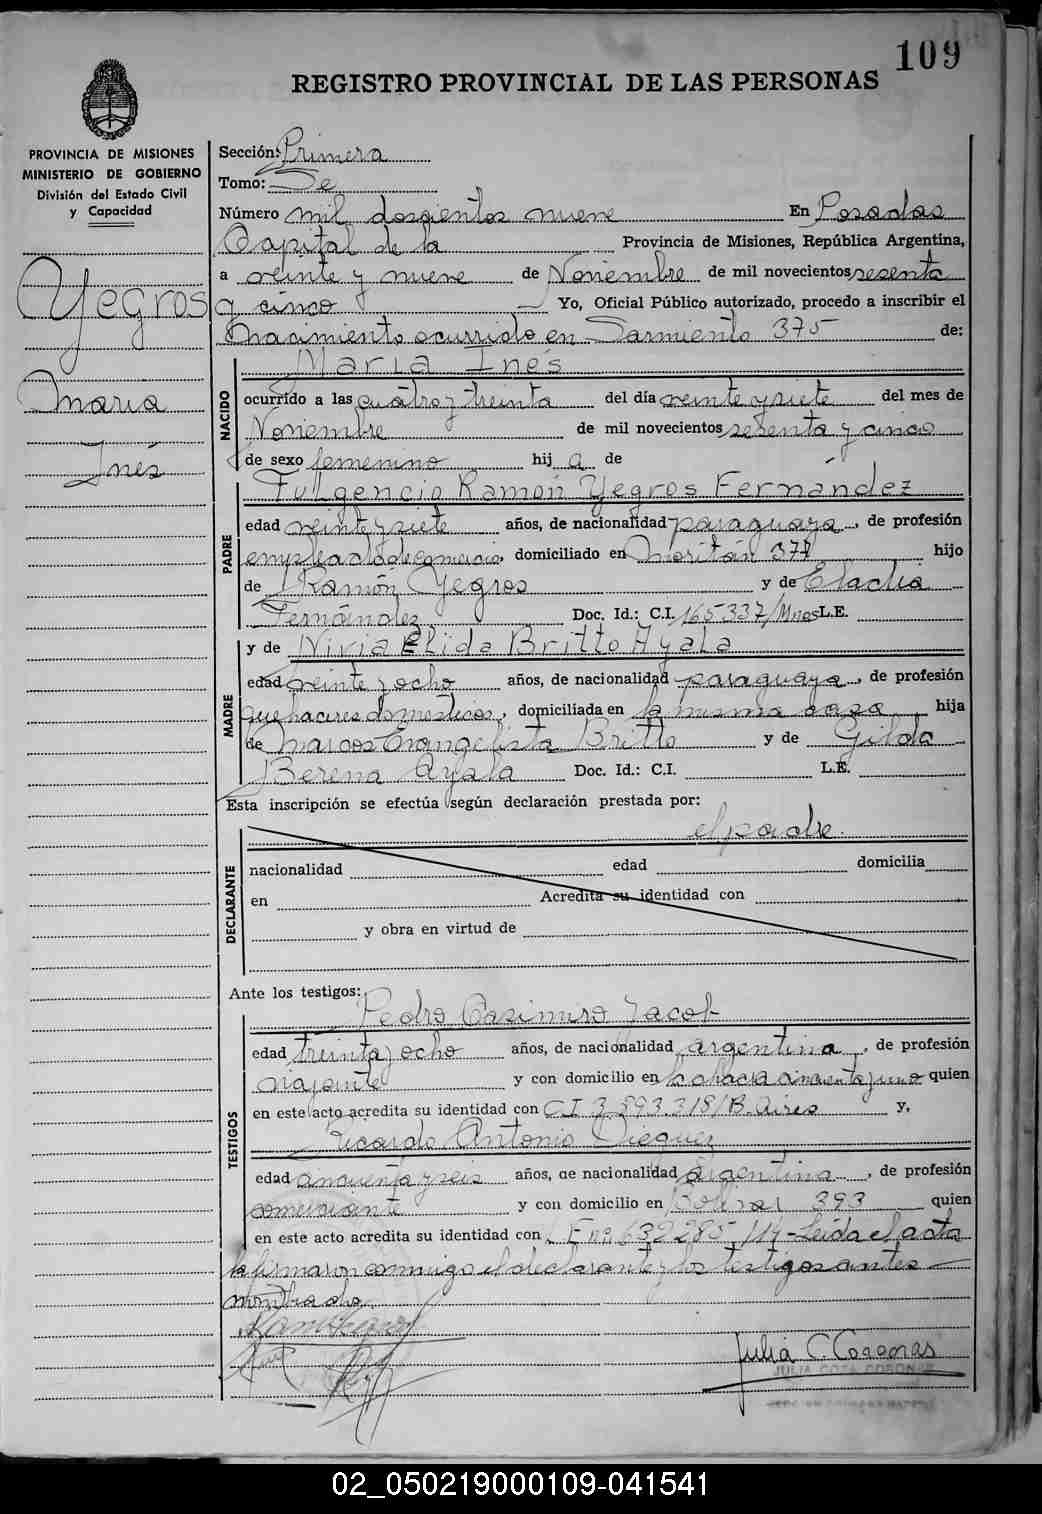 109
REGISTRO PROVINCIAL DE LAS PERSONAS
PROVINCIA DE MISIONES
MINISTERIO DE GOBIERNO
División del Estado Civil
y Capacidad
Yegros
María
Inés
Sección: Primera
Tomo: Se
Número mil doscientos nueve En Posadas
Capital de la Provincia de Misiones, República Argentina,
a veinte y nueve de Noviembre de mil novecientos sesenta
y cinco Yo, Oficial Público autorizado, procedo a inscribir el
nacimiento ocurrido en Sarmiento 375 de:
NACIDO
María Inés
ocurrido a las cuatro y treinta del día veinte y siete del mes de
Noviembre de mil novecientos sesenta y cinco
de sexo femenino hij a de
PADRE
Fulgencio Ramón Yegros Fernández
edad veinte y siete años, de nacionalidad paraguaya, de profesión
empleado de comercio domiciliado en hijo
de Ramón Yegros y de Eladia
Fernández Doc. Id.: C.I. 165337/Mnes L.E.
MADRE
y de Nivia Elida Britto Ayala
edad veinte y ocho años, de nacionalidad paraguaya, de profesión
quehaceres domésticos, domiciliada en la misma casa hija
de Marcos Evangelista Britto y de Gilda
Berena Ayala Doc. Id.: C.I. L.E.
Esta inscripción se efectúa según declaración prestada por:
el padre.
DECLARANTE
nacionalidad edad domicilia
en Acredita su identidad con
y obra en virtud de
Ante los testigos:
Pedro Casimiro Jacob
TESTIGOS
edad treinta y ocho años, de nacionalidad argentina, de profesión
viajante y con domicilio en la chacra cincuenta y uno quien
en este acto acredita su identidad con CI 3.893.318/B. Aires y,
Ricardo Antonio Dieguez
edad cincuenta y seis años, de nacionalidad argentina, de profesión
comerciante y con domicilio en Bolívar 393 quien
en este acto acredita su identidad con Leída el acta
la firmaron conmigo el declarante y los testigos antes
nombrado.
Julia C. Coronas
02_050219000109-041541